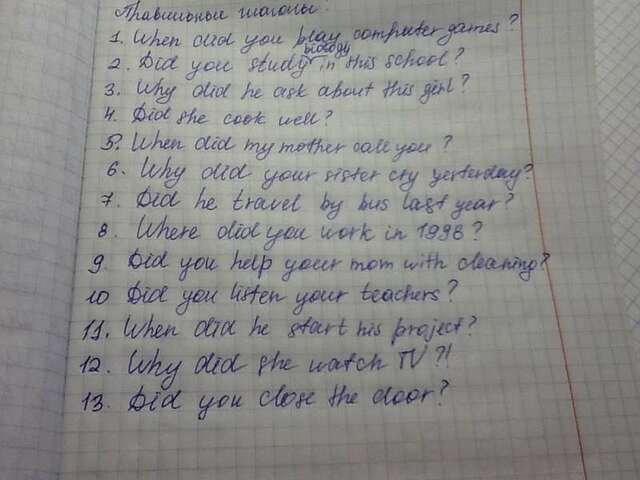 Правильные глаголы:
1. When did you play computer games?
biology
2. Did you study in this school?
3. Why did he ask about this girl?
4. Did she cook well?
5. When did my mother call you?
6. Why did your sister cry yesterday?
7. Did he travel by bus last year?
8. Where did you work in 1998?
9. Did you help your mom with cleaning?
10 Did you listen your teachers?
11. When did he start his project?
12. Why did she watch TV?!
13. Did you close the door?